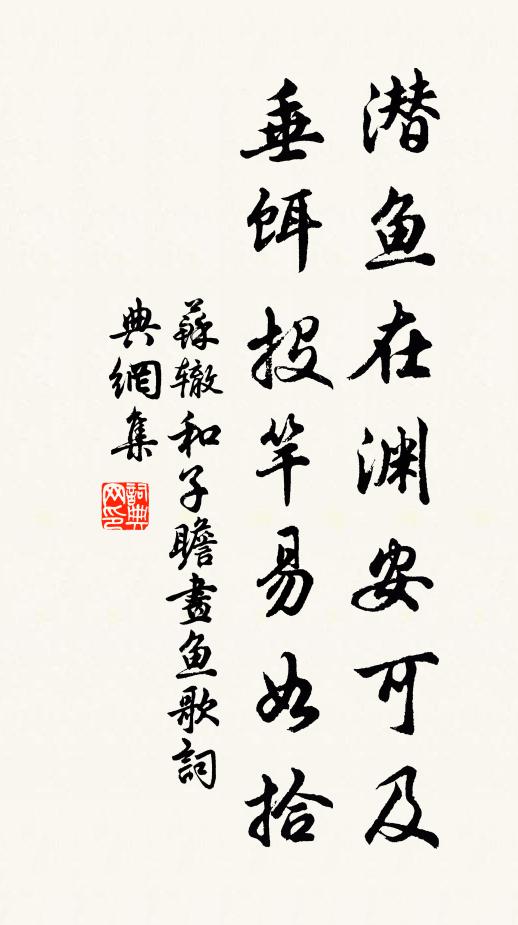 潜鱼在渊安可及
垂饵投竿易如拾
蘇辙和子瞻畫鱼歌詞
典網集
詞典网印